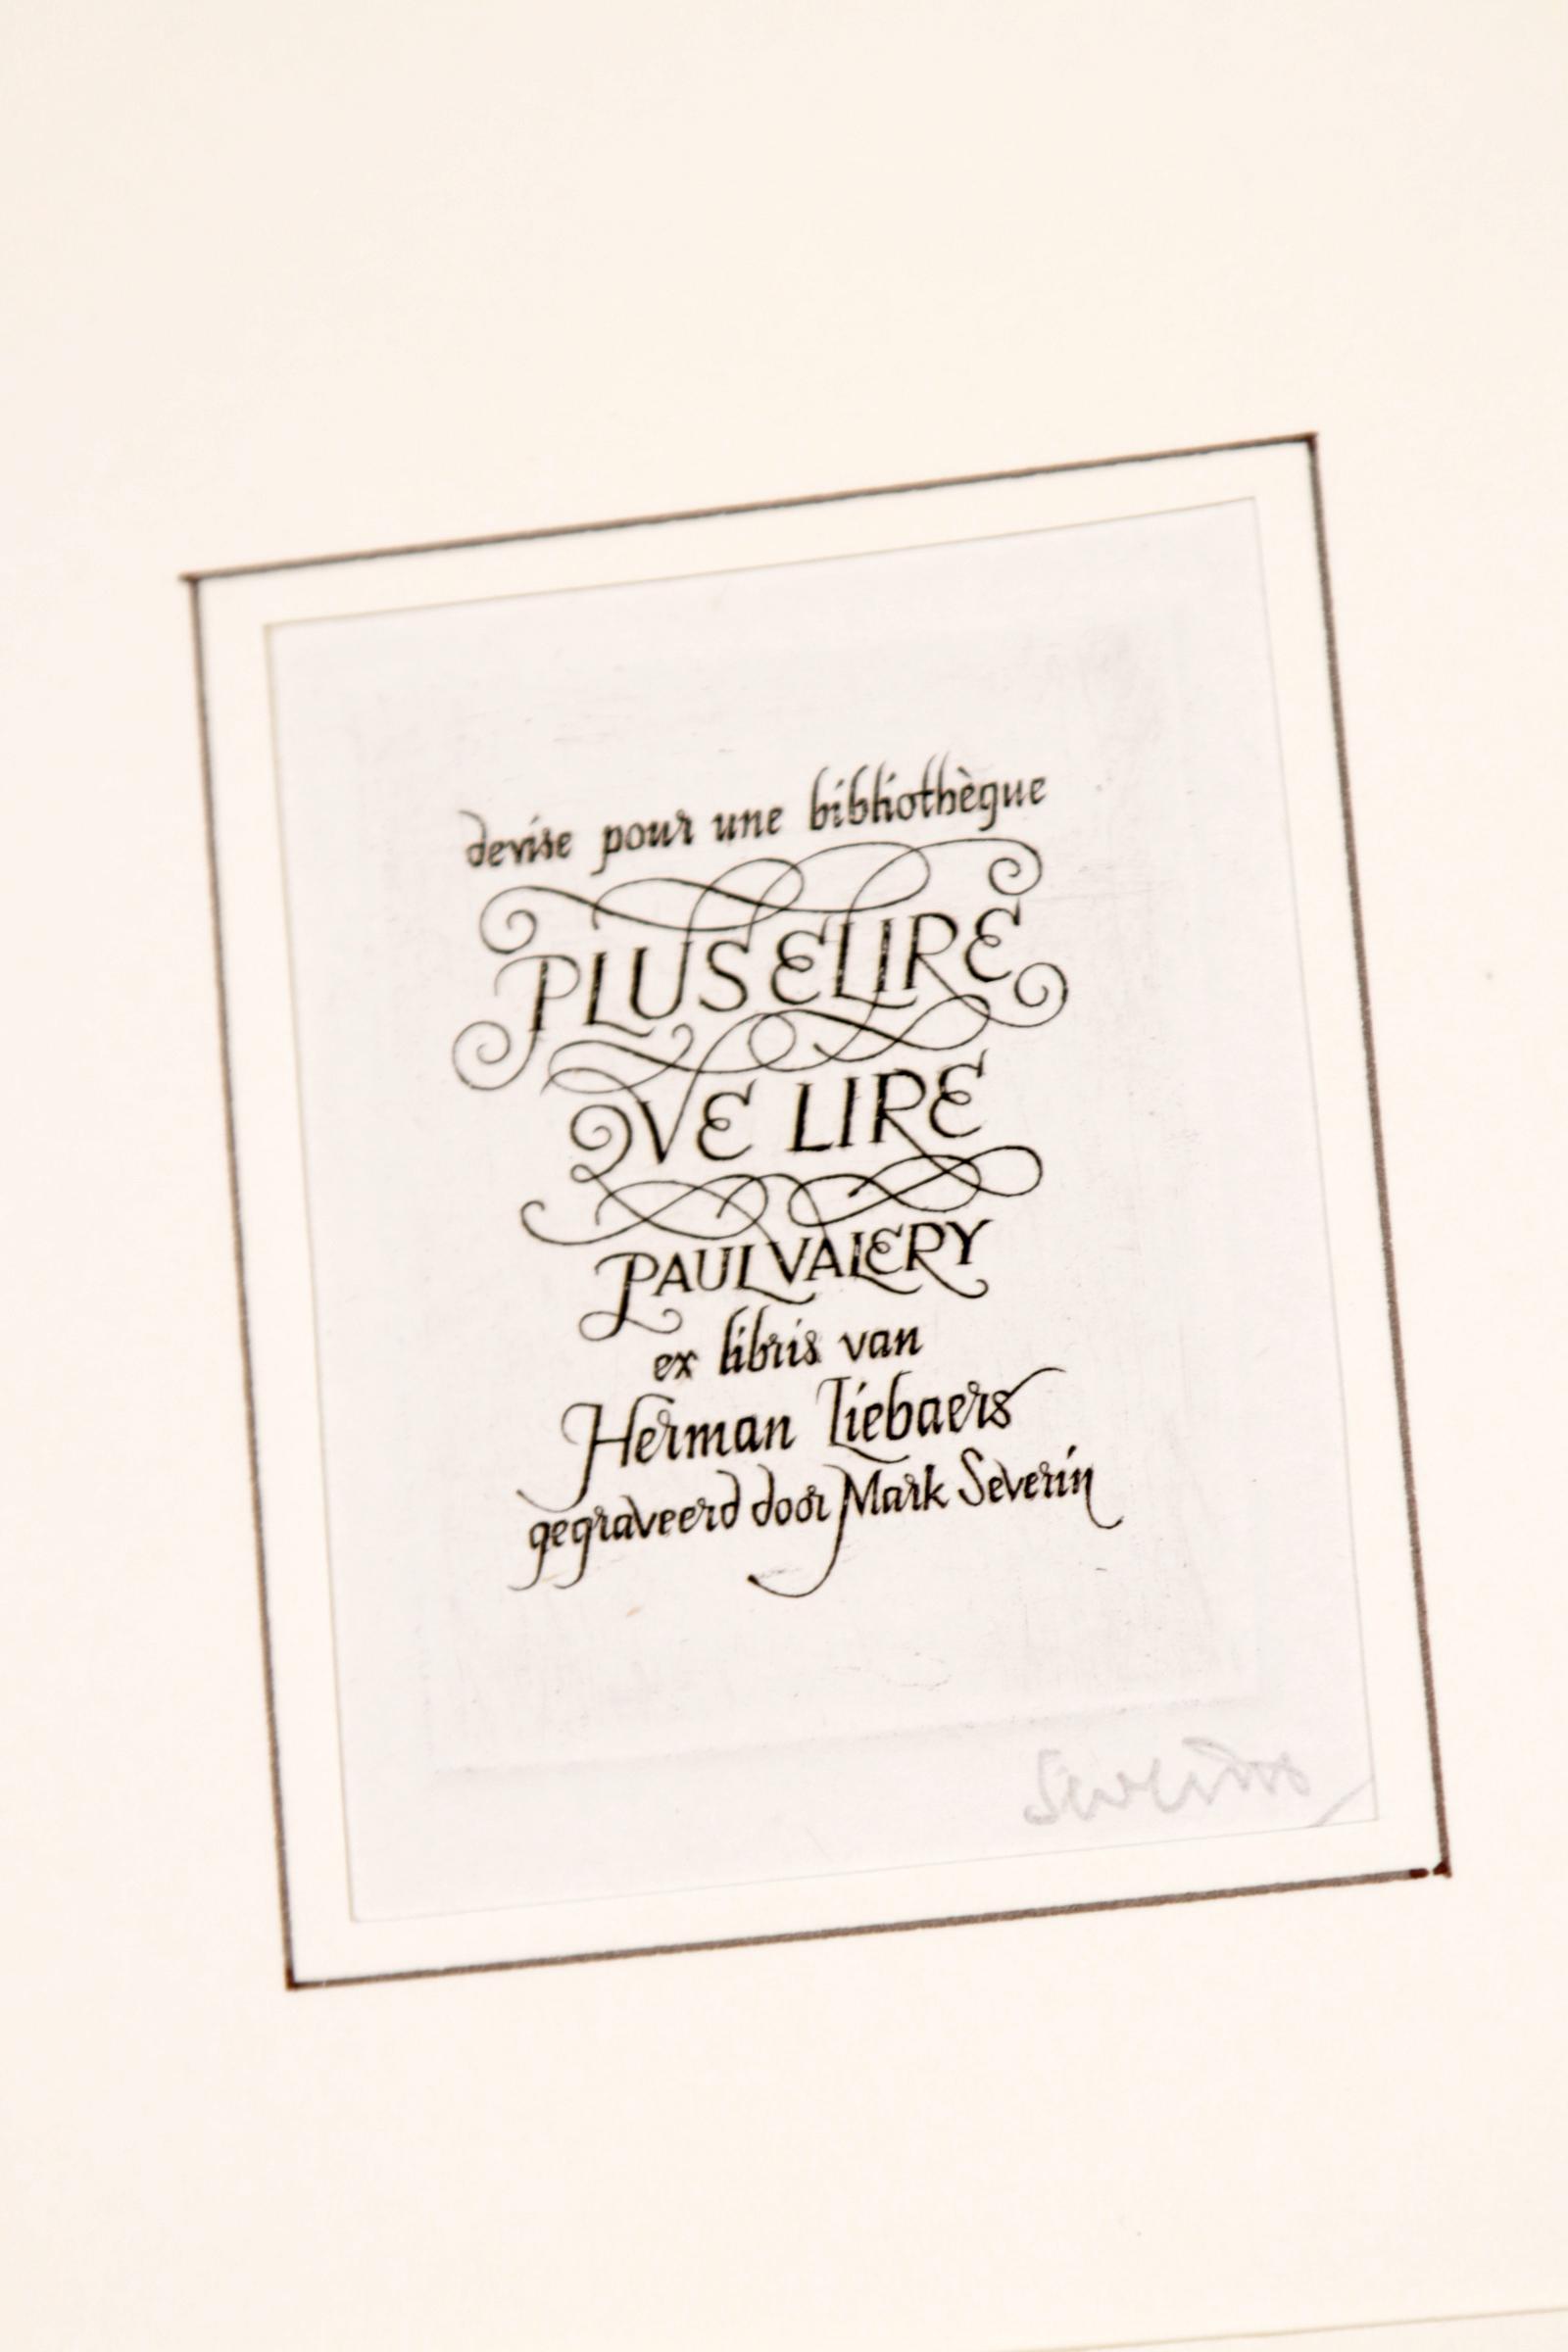 devise pour une bibliothèque
PLUS ELIRE
QVE LIRE
PAUL VALERY
ex libris van
Herman Liebaers
gegraveerd door Mark Severin